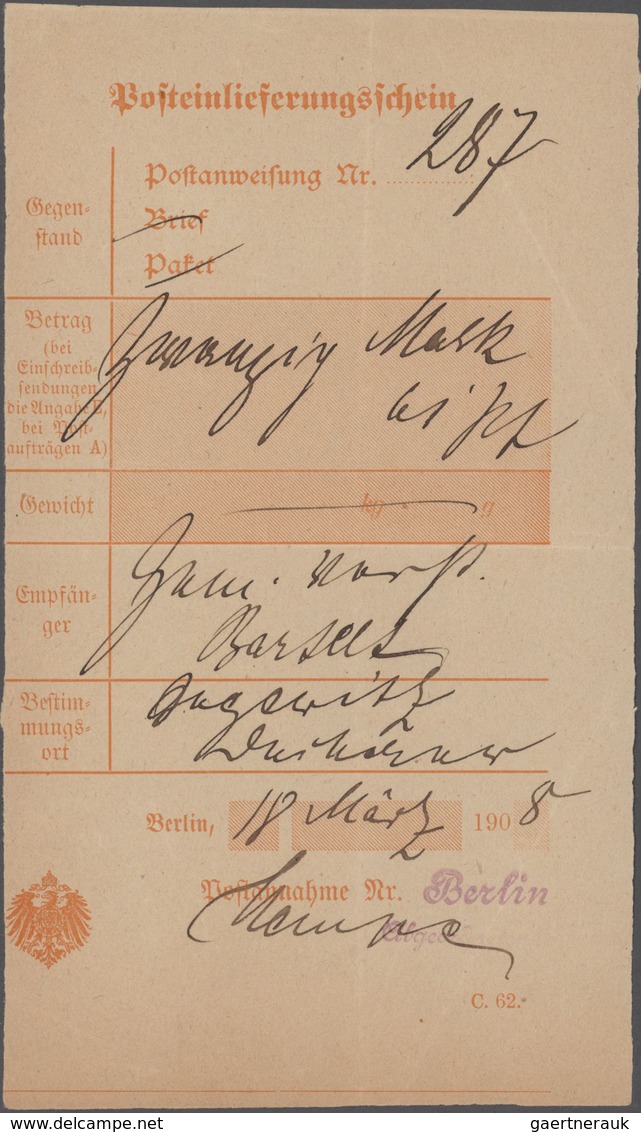 Posteinlieferungsschein
Gegen-
stand
Postanweisung Nr. 287
Brief
Paket
Betrag
(bei
Einschreib-
sendungen
die Angabe E,
bei Post-
aufträgen A)
Zwanzig Mark
61 Pf
Gewicht
kg
g
Empfän-
ger
Gem. Vorst.
Bartelt
Bestim-
mungs-
ort
Berlin, 18 März 1908
Postannahme Nr. Berlin
C. 62.
gaertnerauk